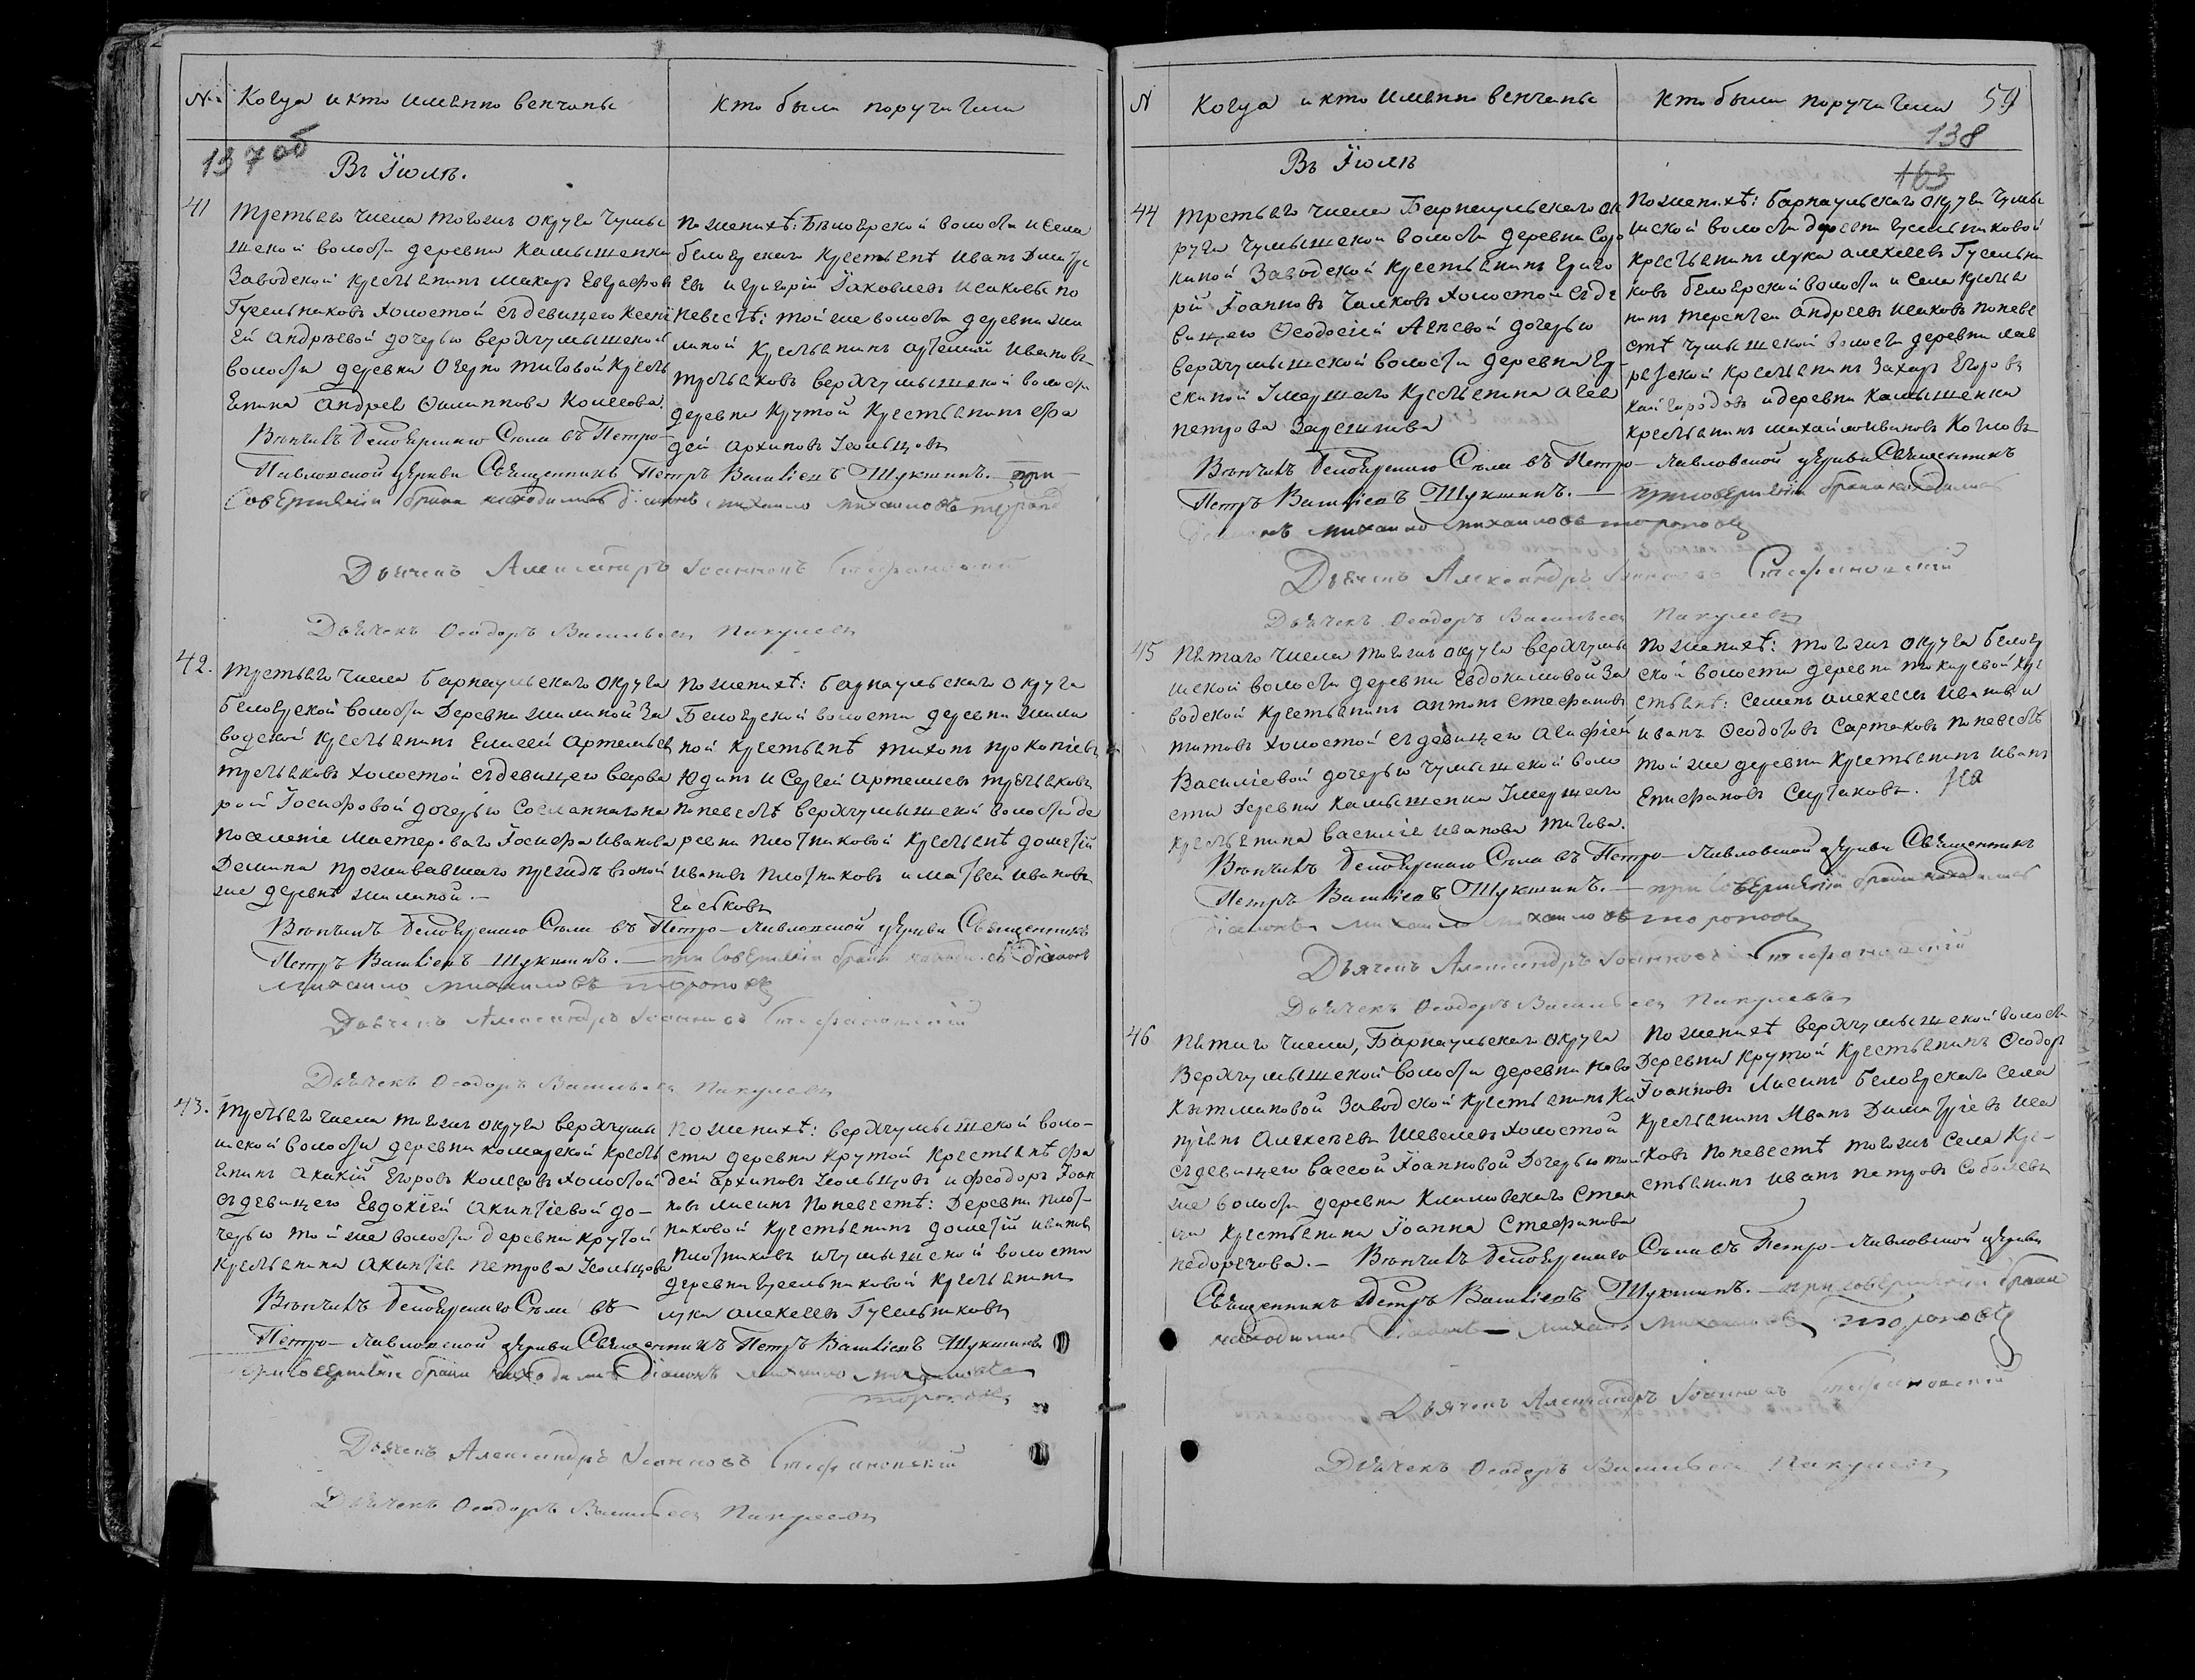 № Когда и кто именно венчаны
кто были поручители
137 об
Въ Іюлѣ.
41
третьяго числа тогожъ округа Чумы
шской волости деревни Камышенки
Заводской крестьянинъ Макаръ Евграфовъ
Гусельниковъ холостой съ девицею Ксени
ей Андрѣевой дочерью верхчумышской
волости деревни Озерно титовой кресть
янина Андрея Филиппова Колесова.
По женихѣ: Бѣлоярской волости и села
белоярскаго крестьянѣ Иванъ Дмитрі
евъ и Григорій Іаковлевъ Исаковы по
невестѣ: той же волости деревни Жи
линой крестьянинъ Артемий Ивановъ
третьяковъ верхчумышской волости
деревни Крутой крестьянинъ Фа
дей Архиповъ Усольцовъ
Вѣнчалъ Белоярскаго Села въ Петро-
Павловской церкви Священникъ Петръ Васильевъ Шукшинъ. — при
совершеніи брака находились діаконъ михаило михаиловъ торопов
Дьячекъ Александръ Іоанновъ Стефановскій
Дьячекъ Ѳеодоръ Васильевъ Пакулевъ
42.
третьяго числа Барнаульскаго округа
Белоярской волости деревни Жилиной За
водской крестьянинъ Елисей Артемьевъ
третьяковъ холостой съ девицею варва
рой Іосифовой дочерью Сосланнаго на
поселеніе мастероваго Іосифа Иванова
Демина проживавшаго прежде въ оной
же деревнѣ Жилиной. —
По женихѣ: Барнаульскаго округа
Белоярской волости деревни Жили
ной крестьянѣ Тихонъ Прокопіевъ
Юдинъ и Сергей Артемьевъ третьяковъ
по невестѣ верхчумышской волости де
ревни Плотниковой крестьянѣ Дометій
Ивановъ Плотниковъ и Матвей Ивановъ
Вѣнчалъ Белоярскаго Села въ Петро-Павловской церкви Священникъ
Петръ Васильевъ Шукшинъ. — при совершеніи брака находились діаконъ
михаило михаиловъ торопов
Дьячекъ Александръ Іоанновъ Стефановскій
Дьячекъ Ѳеодоръ Васильевъ Пакулевъ
43.
третьяго числа тогожъ округа верхчумы
шской волости деревни Комарской кресть
янинъ Акакій Егоровъ Колесовъ холостой
съ девицею Евдокіей Акинтіевой до-
черью той же волости деревни Крутой
крестьянина Акинтія Петрова Усольцова
По женихѣ: верхчумышской воло-
сти деревни Крутой крестьянѣ Фа
дей Архиповъ Усольцовъ и Феодоръ Іоан
новъ Лисинъ по невестѣ: деревни Плот-
никовой крестьянинъ Дометій Ивановъ
Плотниковъ и Чумышской волости
деревни Гусельниковой крестьянинъ
Лука Алексеевъ Гусельниковъ
Вѣнчалъ Белоярскаго Села въ
Петро-Павловской церкви Священникъ Петръ Васильевъ Шукшинъ
при совершеніи брака находились діаконъ михаило михаиловъ
торопов
Дьячекъ Александръ Іоанновъ Стефановскій
Дьячекъ Ѳеодоръ Васильевъ Пакулевъ
№ Когда и кто именно венчаны
кто были поручители 59
138
163
Въ Іюлѣ
44
третьяго числа Барнаульскаго ок
руга Чумышской волости деревни Соро
киной Заводской крестьянинъ Григо
рій Іоанновъ Чалковъ холостой съ де
вицею Ѳеодосіей Агеевой дочерью
верхчумышской волости деревни
скиной Умершаго крестьянина Агея
Петрова
По женихѣ: Барнаульскаго округа Чумы
шской волости деревни Гусельниковой
крестьянинъ Лука Алексеевъ Гусельни
ковъ белоярской волости и села кресть
нинъ Терентей Андреевъ Исаковъ по неве
стѣ Чумышской волости деревни
крестьянинъ Захаръ Егоровъ
Кайгородовъ и деревни Камышенки
крестьянинъ Михайло Ивановъ
Вѣнчалъ Белоярскаго Села въ Петро-Павловской церкви Священникъ
Петръ Васильевъ Шукшинъ. — при совершеніи брака находились
діаконъ михаило михаиловъ торопов
Дьячекъ Александръ Іоанновъ Стефановскій
Дьячекъ Ѳеодоръ Васильевъ Пакулевъ
45
Пятаго числа тогожъ округа верхчумы
шской волости деревни Евдокимовой За
водской крестьянинъ Антонъ Стефановъ
Титовъ холостой съ девицею Агафіей
Василіевой дочерью Чумышской воло
сти деревни Камышенки Умершаго
крестьянина Василія Иванова Тигова.
По женихѣ: тогожъ округа белояр
ской волости деревни Токаревой кре
стьянѣ: Семенъ Алексеевъ Ивановъ и
Иванъ Ѳеодотовъ Сартаковъ по невестѣ
той же деревни крестьянинъ Иванъ
Епифановъ Сартаковъ.
Вѣнчалъ Белоярскаго Села въ Петро-Павловской церкви Священникъ
Петръ Васильевъ Шукшинъ. — при совершеніи брака находились
діаконъ михаило михаиловъ торопов
Дьячекъ Александръ Іоанновъ Стефановскій
Дьячекъ Ѳеодоръ Васильевъ Пакулевъ
46
Пятаго числа, Барнаульскаго округа
Верхчумышской волости деревни Ново
Кытмановой Заводской крестьянинъ Ки
пріянъ Алексѣевъ Шевелевъ холостой
съ девицею Вассой Іоанновой дочерью той
же волости деревни Климовскаго Стан
ца крестьянина Іоанна Стефанова
Недорезова. — Вѣнчалъ Белоярскаго Села въ Петро-Павловской церкви
По женихѣ верхчумышской волости
деревни Крутой крестьянинъ Ѳеодоръ
Іоанновъ Лисинъ белоярскаго села
крестьянинъ Иванъ Димитріевъ Иса
ковъ по невестѣ тогожъ села кре-
стьянинъ Иванъ Петровъ Соболевъ
Священникъ Петръ Васильевъ Шукшинъ. — при совершеніи брака
находились діаконъ — михаило михаиловъ торопов
Дьячекъ Александръ Іоанновъ Стефановскій
Дьячекъ Ѳеодоръ Васильевъ Пакулевъ